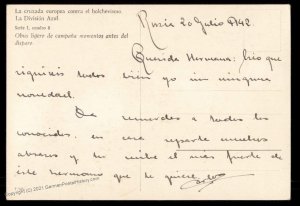 La cruzada europea contra el bolchevismo.
La División Azul.
Serie I, cuadro 8
Obús ligero de campaña momentos antes del
disparo
Rusia 20 Julio 1942.
Querida Hermana: Creo que
siguiréis todos bien yo sin ninguna
novedad.
Da recuerdos a todos los
conocidos, en casa reparte muchos
abrazos y tu recibe el más fuerte de
este hermano que te quiere
Copyright (C) 2021 GermanPostalHistory.com